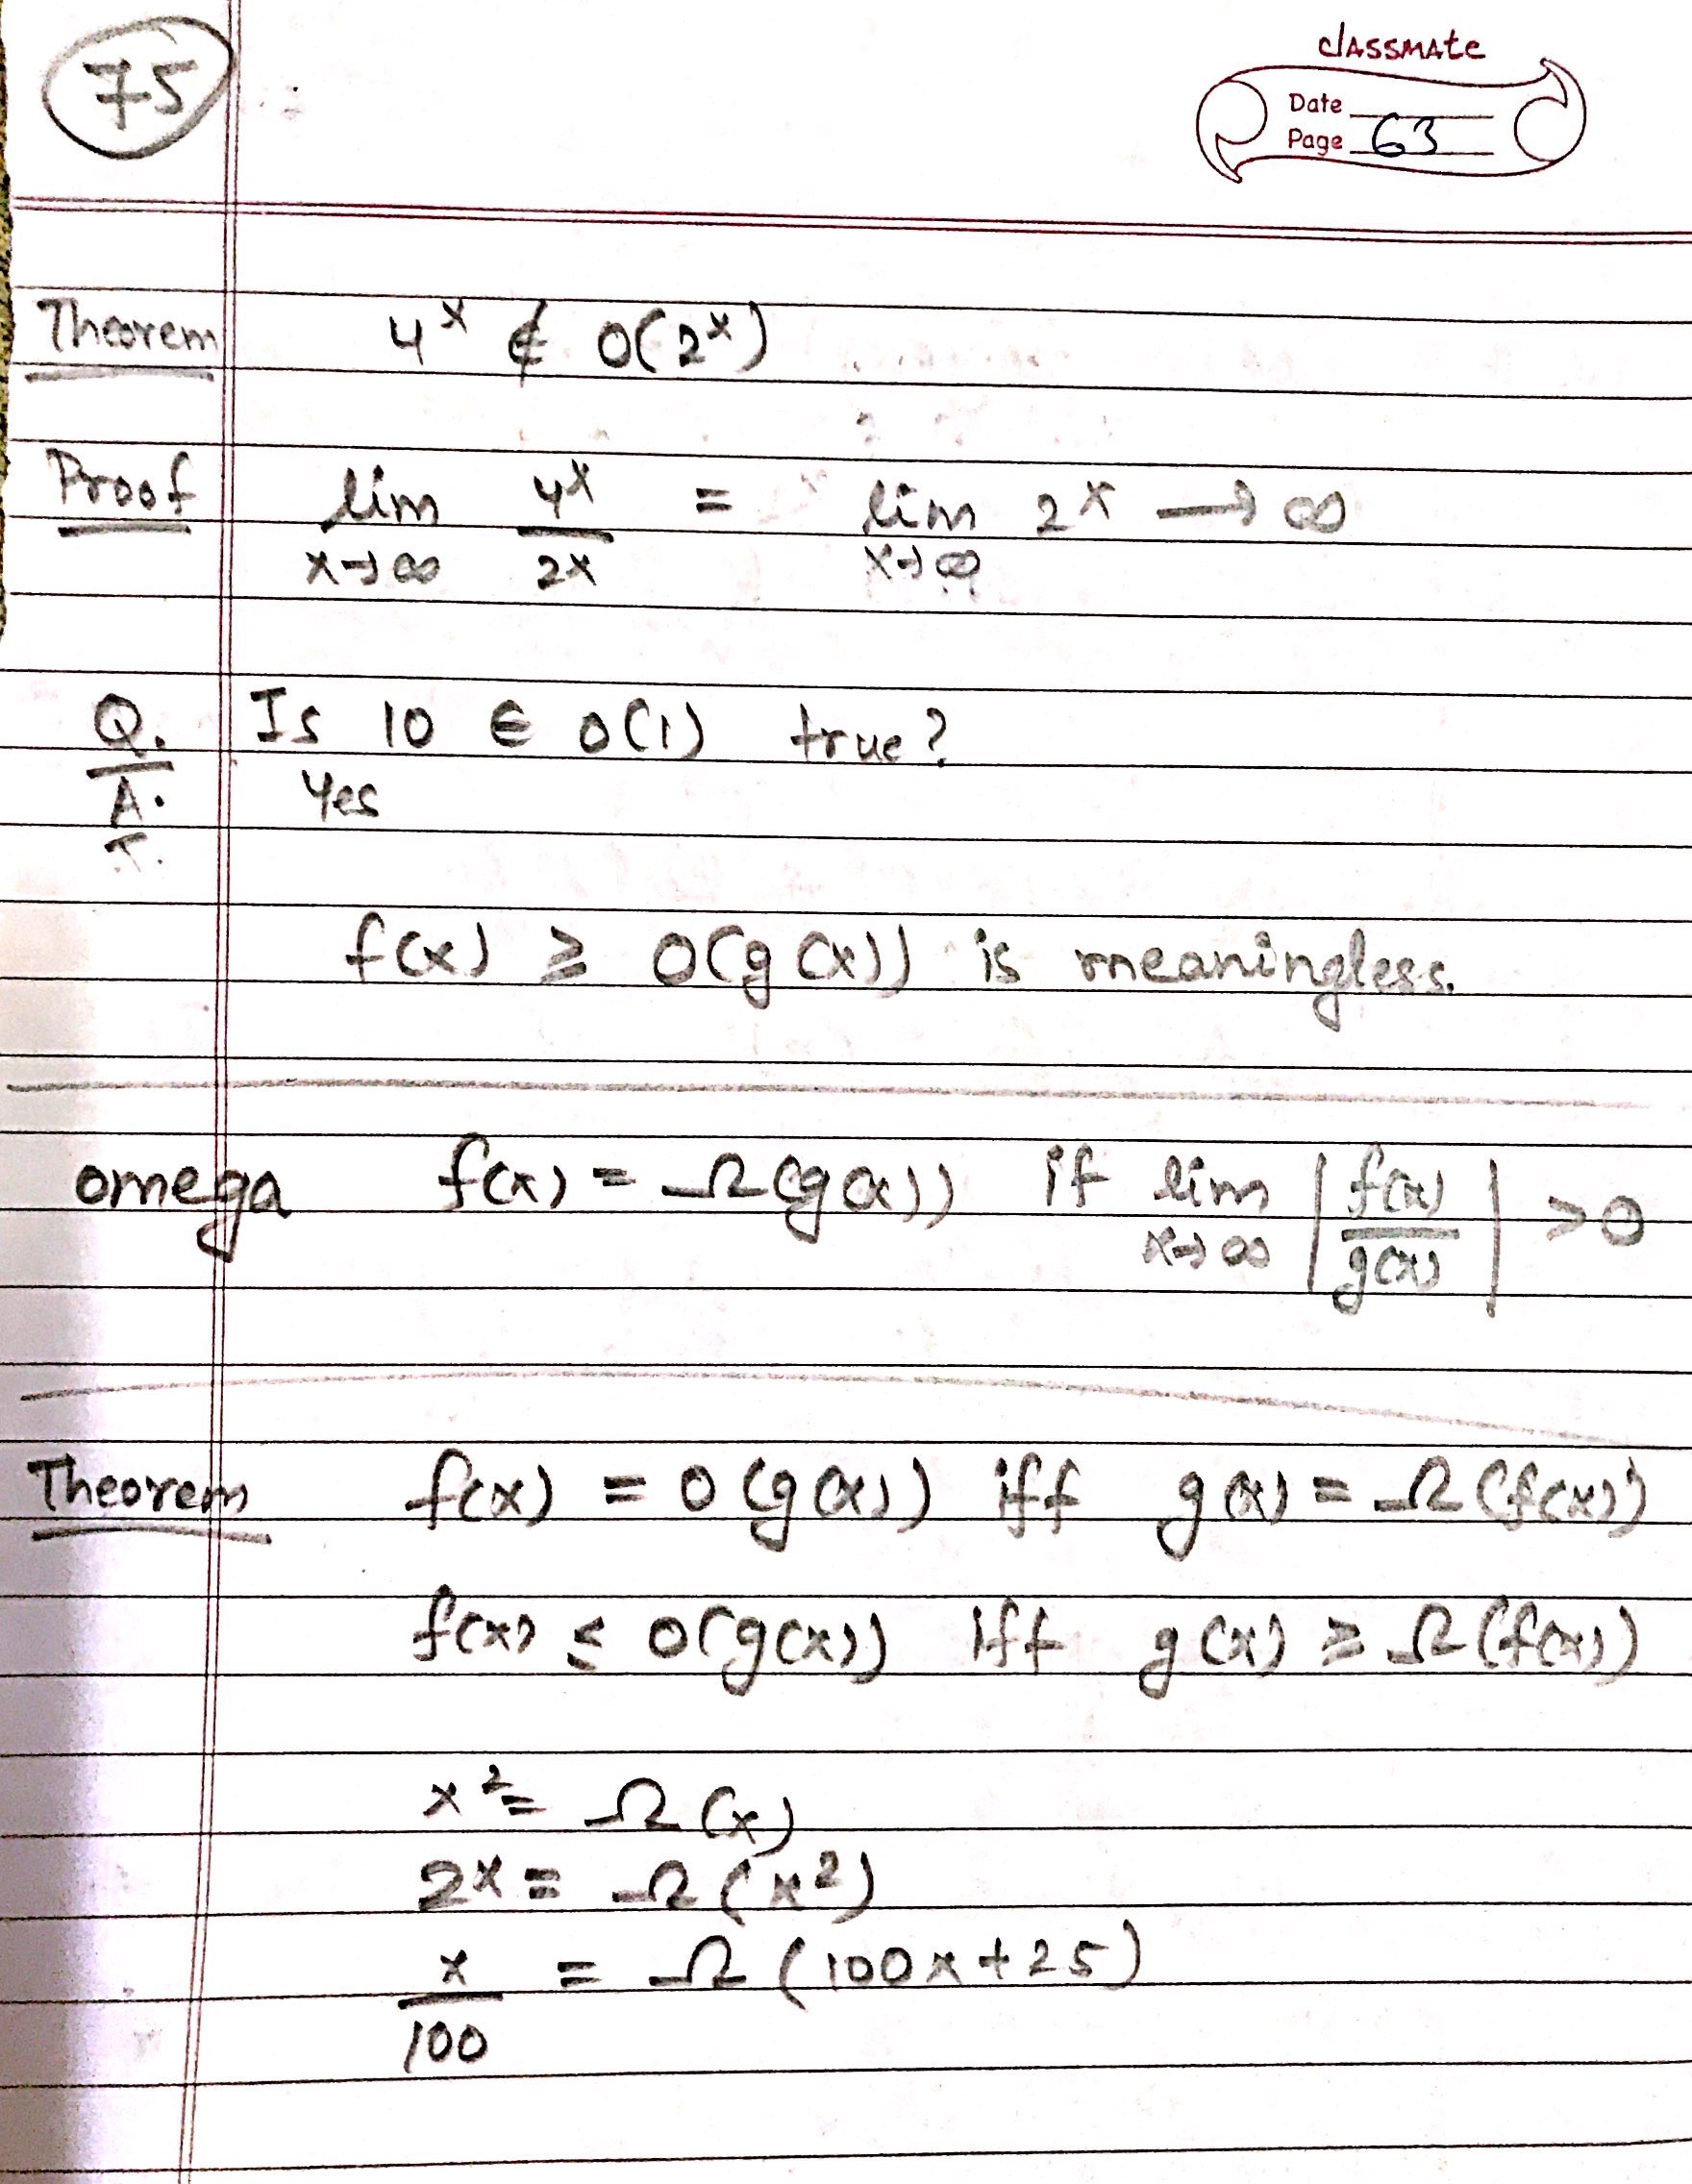 75
classmate
Date
Page 63
Theorem 4^x ∉ O(2^x)
Proof lim x→∞ 4^x / 2^x = lim x→∞ 2^x → ∞
Q. Is 10 ∈ O(1) true?
A. Yes
f(x) ≥ O(g(x)) is meaningless.
omega f(x) = Ω(g(x)) if lim x→∞ |f(x)/g(x)| > 0
Theorem f(x) = O(g(x)) iff g(x) = Ω(f(x))
f(x) ≤ O(g(x)) iff g(x) ≥ Ω(f(x))
x² = Ω(x)
2^x = Ω(x²)
x/100 = Ω(100x+25)